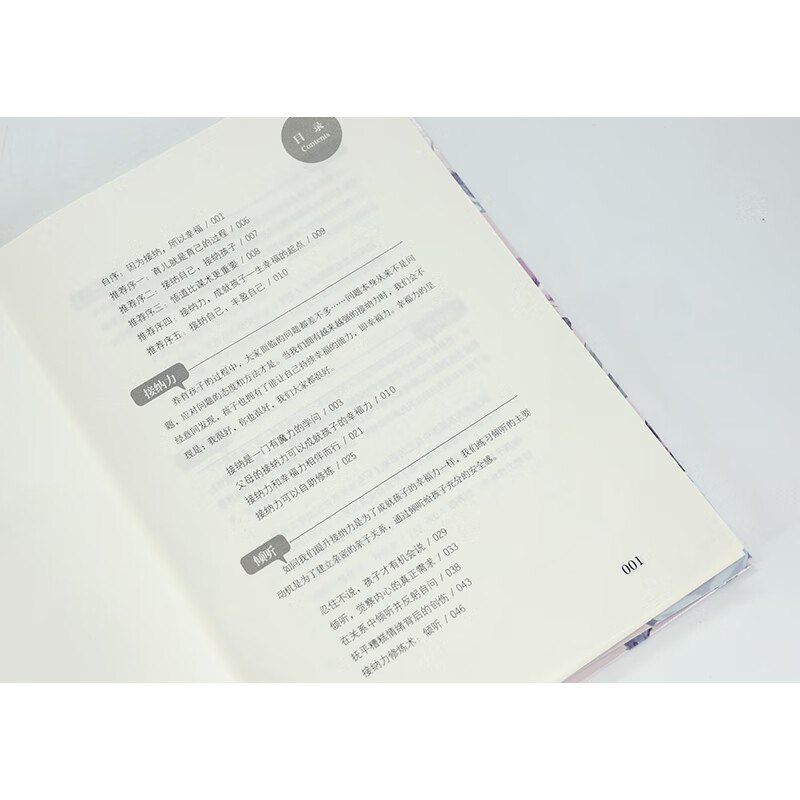 目 录
Contents
自序：因为接纳，所以幸福 / 001
推荐序一：育儿就是育己的过程 / 006
推荐序二：接纳自己，接纳孩子 / 007
推荐序三：悟道比谋术更重要 / 008
推荐序四：接纳力，成就孩子一生幸福的起点 / 009
推荐序五：接纳自己，丰盈自己 / 010
接纳力
养育孩子的过程中，大家面临的问题都差不多……问题本身从来不是问
题，应对问题的态度和方法才是。当我们拥有越来越强的接纳力时，我们会不
经意间发现，孩子也拥有了能让自己持续幸福的能力，即幸福力。幸福力的呈
现是：我很好，你也很好，我们大家都很好。
接纳是一门有魔力的学问 / 003
父母的接纳力可以成就孩子的幸福力 / 010
接纳力和幸福力相伴而行 / 021
接纳力可以自助修炼 / 025
倾听
如同我们提升接纳力是为了成就孩子的幸福力一样，我们练习倾听的主要
动机是为了建立亲密的亲子关系，通过倾听给孩子充分的安全感。
忍住不说，孩子才有机会说 / 029
倾听，觉察内心的真正需求 / 033
在关系中倾听并反躬自问 / 038
抚平糟糕情绪背后的创伤 / 043
接纳力修炼术：倾听 / 046
001